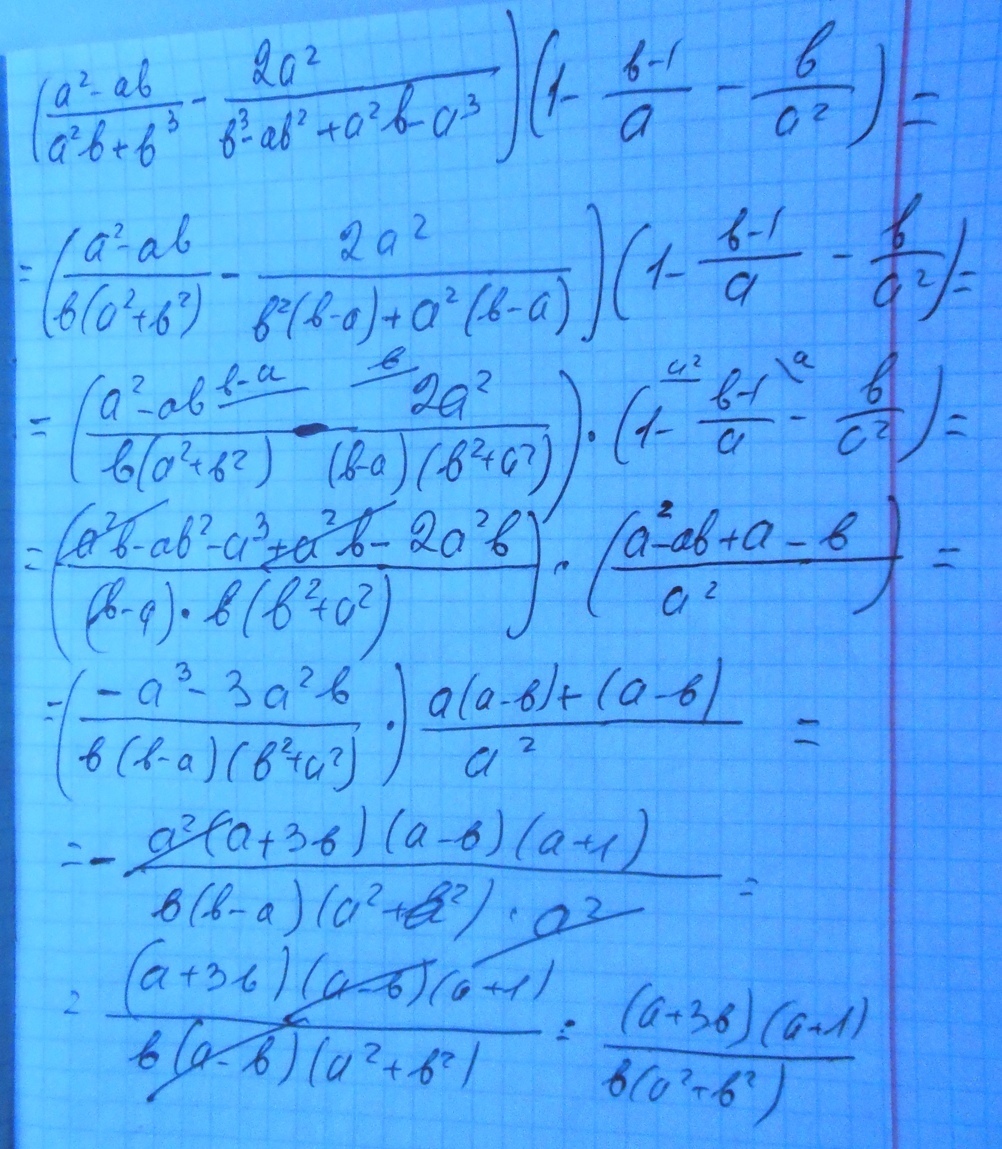 ((a²-ab)/(a²b+b³) - 2a²/(b³-ab²+a²b-a³))(1 - (b-1)/a - b/a²) =
= ((a²-ab)/(b(a²+b²)) - 2a²/(b²(b-a)+a²(b-a)))(1 - (b-1)/a - b/a²) =
= ((a²-ab)/(b(a²+b²)) b-a - b 2a²/((b-a)(b²+a²))) · (1 a² - (b-1)/a a - b/a²) =
= ((a²b-ab²-a³+a²b-2a²b)/((b-a)·b(b²+a²))) · ((a²-ab+a-b)/a²) =
= ((-a³-3a²b)/(b(b-a)(b²+a²)) ·) (a(a-b)+(a-b))/a² =
= - (a²(a+3b)(a-b)(a+1))/(b(b-a)(a²+b²)·a²) =
= ((a+3b)(a-b)(a+1))/(b(a-b)(a²+b²)) = ((a+3b)(a+1))/(b(a²+b²))